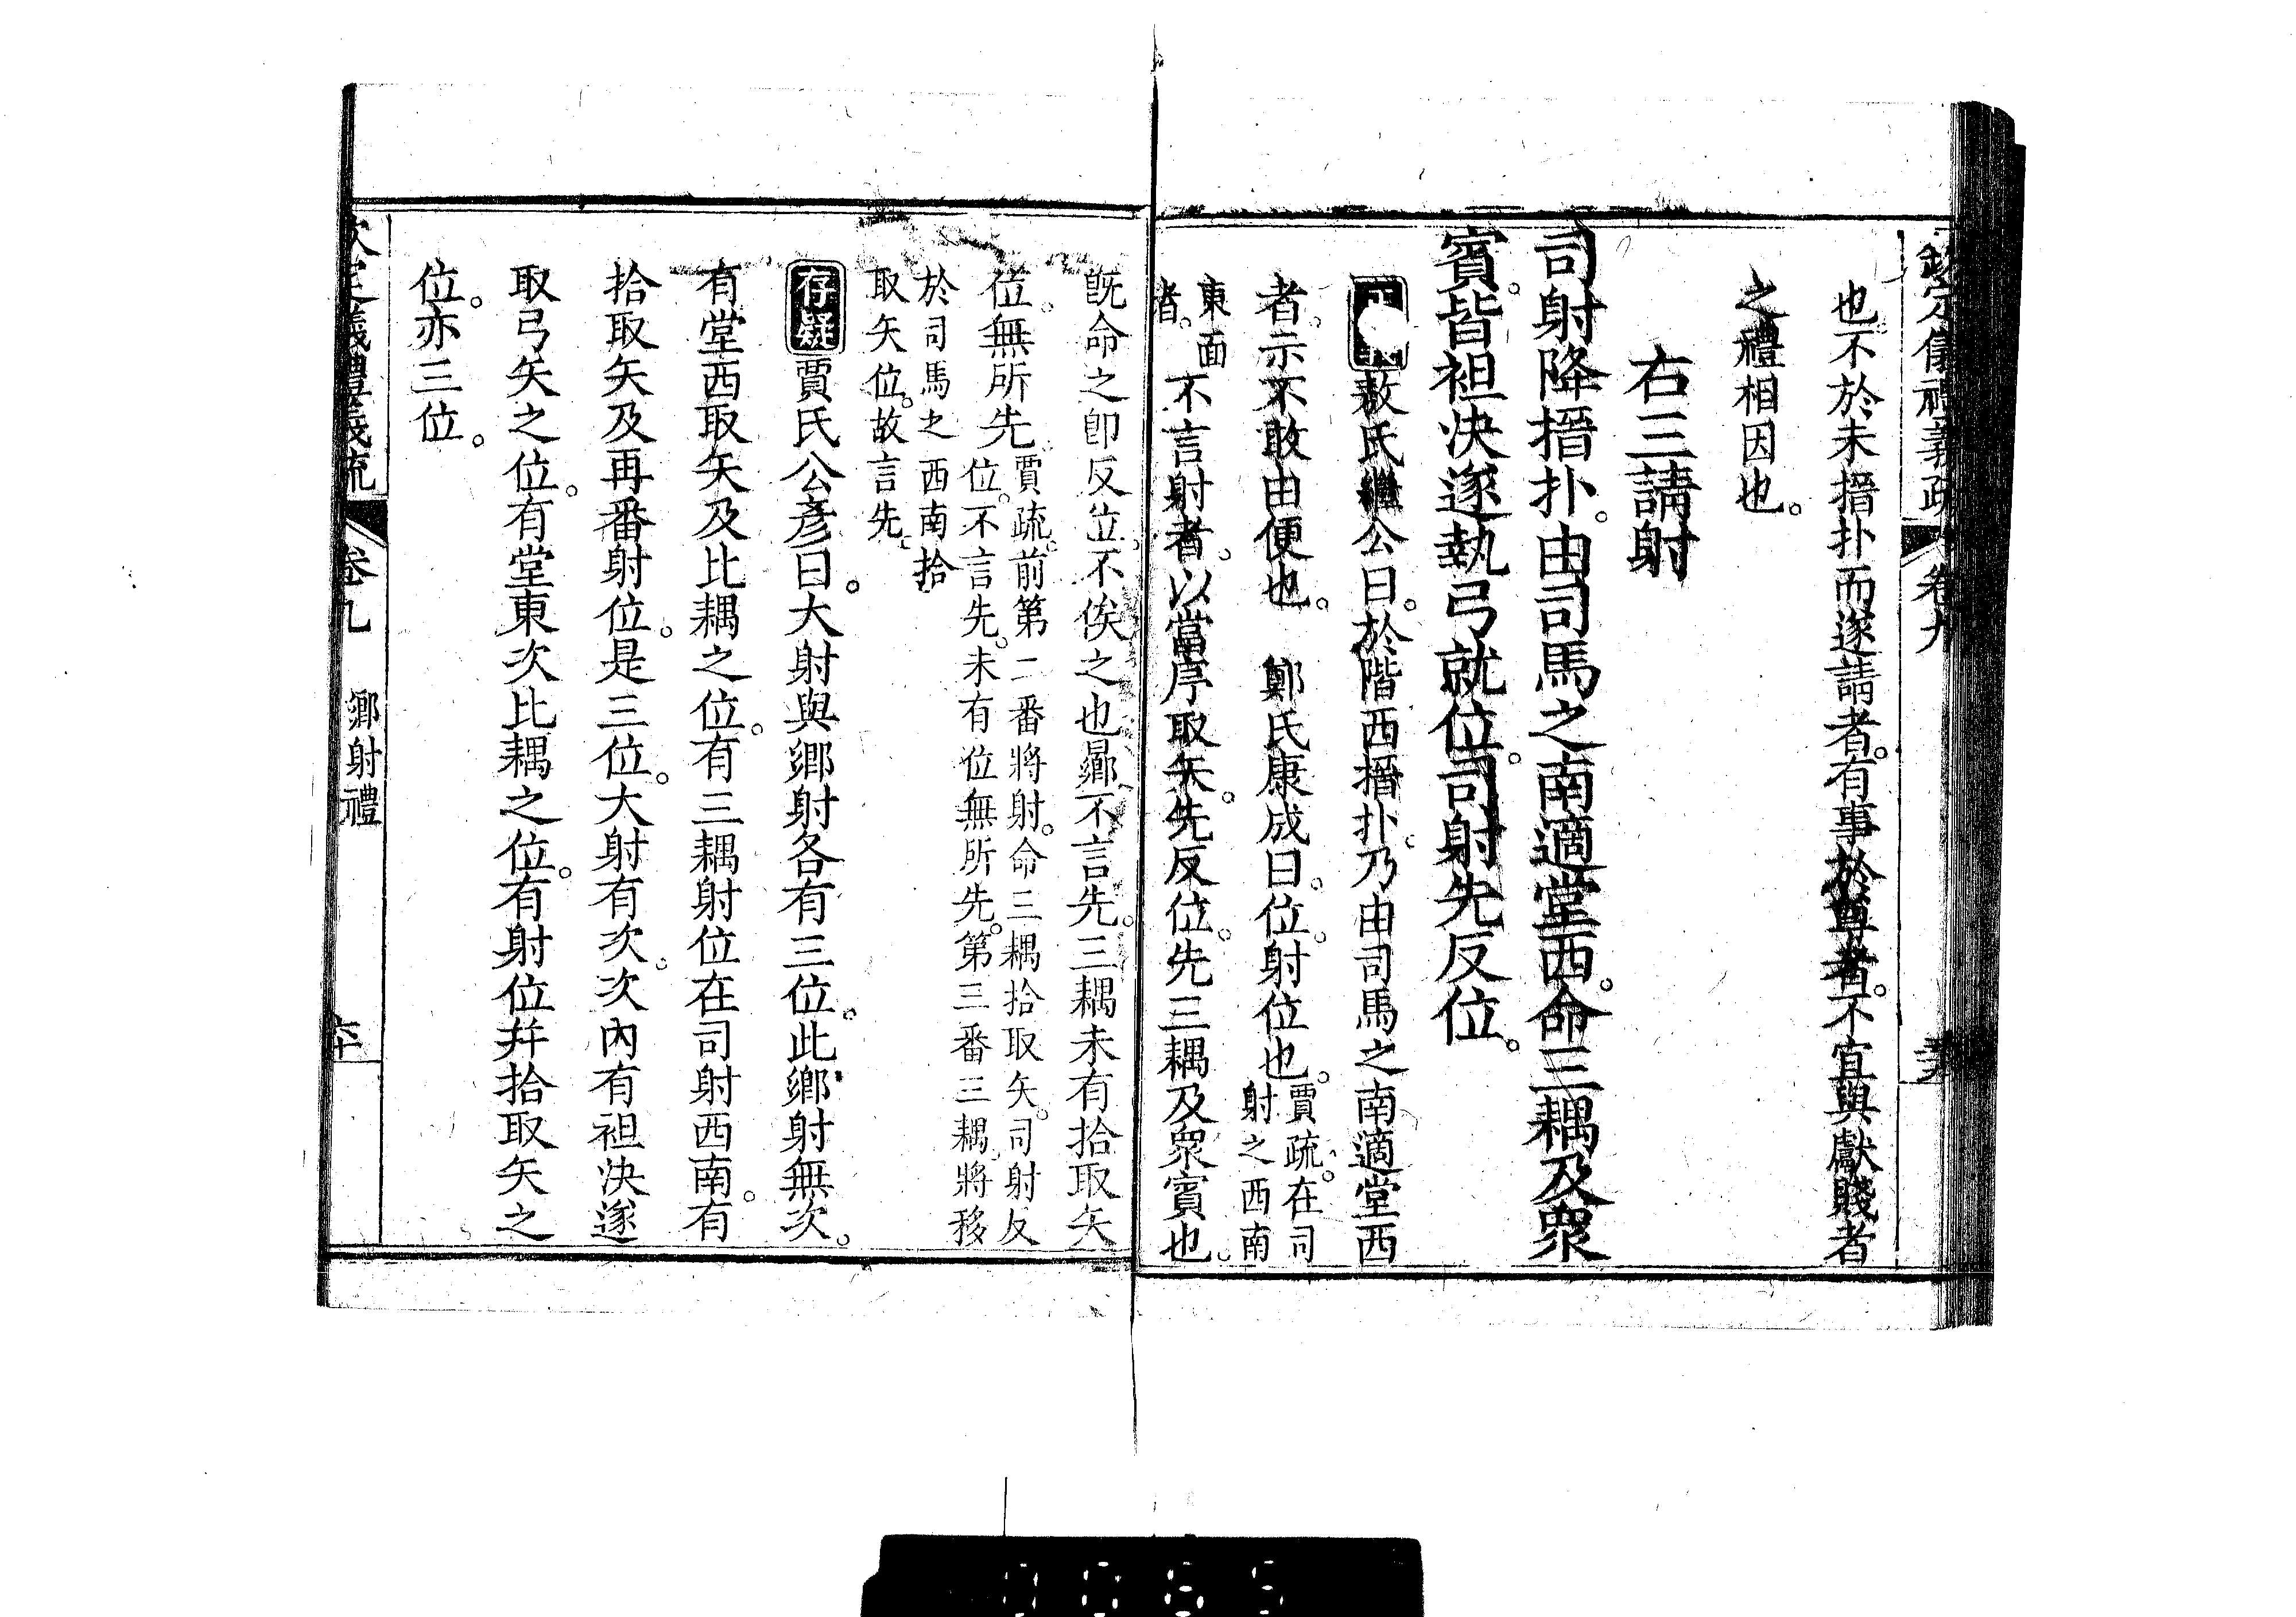 欽定儀禮義疏 卷九
也。不於未搢扑而遂請者。有事於尊者。不宜與獻賤者
之禮相因也。
右三請射
司射降搢扑。由司馬之南適堂西。命三耦及眾
賓。皆袒決遂執弓就位。司射先反位。
敖氏繼公曰。於階西搢扑。乃由司馬之南適堂西
者。示不敢由便也。 鄭氏康成曰。位。射位也。賈疏。在司
射之西南
東面
者。不言射者。以當序取矢。先反位。先三耦及眾賓也。
既命之即反位。不俟之也。曏不言先。三耦未有拾取矢
位。無所先。賈疏。前第二番將射。命三耦拾取矢。司射反
位。不言先。未有位無所先。第三番三耦將移
於司馬之西南拾
取矢位。故言先。
存疑 賈氏公彥曰。大射與鄉射各有三位。此鄉射無次。
有堂西取矢及比耦之位。有三耦射位在司射西南。有
拾取矢及再番射位。是三位。大射有次。次內有袒決遂
取弓矢之位。有堂東次比耦之位。有射位并拾取矢之
位。亦三位。
定儀禮義疏 卷九 鄉射禮